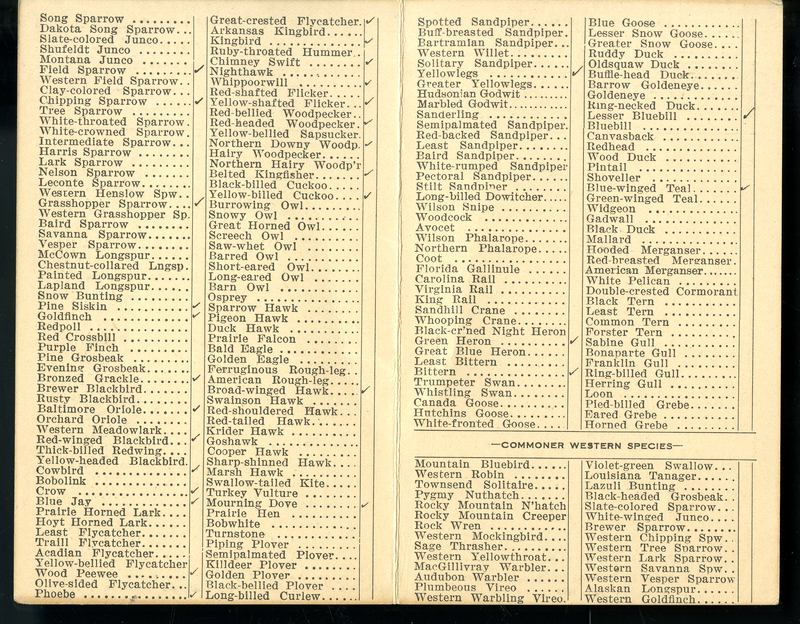 Song Sparrow
Dakota Song Sparrow
Slate-colored Junco
Shufeldt Junco
Montana Junco
Field Sparrow ✓
Western Field Sparrow
Clay-colored Sparrow
Chipping Sparrow ✓
Tree Sparrow
White-throated Sparrow
White-crowned Sparrow
Intermediate Sparrow
Harris Sparrow
Lark Sparrow
Nelson Sparrow
Leconte Sparrow
Western Henslow Spw
Grasshopper Sparrow ✓
Western Grasshopper Sp.
Baird Sparrow
Savanna Sparrow
Vesper Sparrow
McCown Longspur
Chestnut-collared Lngsp.
Painted Longspur
Lapland Longspur
Snow Bunting
Pine Siskin ✓
Goldfinch ✓
Redpoll
Red Crossbill
Purple Finch
Pine Grosbeak
Evening Grosbeak
Bronzed Grackle ✓
Brewer Blackbird
Rusty Blackbird
Baltimore Oriole ✓
Orchard Oriole
Western Meadowlark
Red-winged Blackbird ✓
Thick-billed Redwing
Yellow-headed Blackbird.
Cowbird ✓
Bobolink
Crow ✓
Blue Jay ✓
Prairie Horned Lark
Hoyt Horned Lark
Least Flycatcher
Traill Flycatcher
Acadian Flycatcher
Yellow-bellied Flycatcher
Wood Peewee ✓
Olive-sided Flycatcher
Phoebe ✓
Great-crested Flycatcher. ✓
Arkansas Kingbird
Kingbird ✓
Ruby-throated Hummer
Chimney Swift ✓
Nighthawk
Whippoorwill ✓
Red-shafted Flicker
Yellow-shafted Flicker ✓
Red-bellied Woodpecker
Red-headed Woodpecker. ✓
Yellow-bellied Sapsucker.
Northern Downy Woodp. ✓
Hairy Woodpecker
Northern Hairy Woodp'r
Belted Kingfisher ✓
Black-billed Cuckoo
Yellow-billed Cuckoo ✓
Burrowing Owl
Snowy Owl
Great Horned Owl
Screech Owl
Saw-whet Owl
Barred Owl
Short-eared Owl
Long-eared Owl
Barn Owl
Osprey
Sparrow Hawk
Pigeon Hawk
Duck Hawk
Prairie Falcon
Bald Eagle
Golden Eagle
Ferruginous Rough-leg.
American Rough-leg
Broad-winged Hawk ✓
Swainson Hawk
Red-shouldered Hawk
Red-tailed Hawk
Krider Hawk
Goshawk
Cooper Hawk
Sharp-shinned Hawk
Marsh Hawk
Swallow-tailed Kite
Turkey Vulture
Mourning Dove ✓
Prairie Hen
Bobwhite
Turnstone
Piping Plover
Semipalmated Plover
Killdeer Plover
Golden Plover
Black-bellied Plover
Long-billed Curlew
Spotted Sandpiper
Buff-breasted Sandpiper.
Bartramian Sandpiper
Western Willet
Solitary Sandpiper
Yellowlegs ✓
Greater Yellowlegs
Hudsonian Godwit
Marbled Godwit
Sanderling
Semipalmated Sandpiper.
Red-backed Sandpiper
Least Sandpiper
Baird Sandpiper
White-rumped Sandpiper
Pectoral Sandpiper
Stilt Sandpiper
Long-billed Dowitcher
Wilson Snipe
Woodcock
Avocet
Wilson Phalarope
Northern Phalarope
Coot
Florida Gallinule
Carolina Rail
Virginia Rail
King Rail
Sandhill Crane
Whooping Crane
Black-cr'ned Night Heron
Green Heron ✓
Great Blue Heron
Least Bittern
Bittern ✓
Trumpeter Swan
Whistling Swan
Canada Goose
Hutchins Goose
White-fronted Goose
Blue Goose
Lesser Snow Goose
Greater Snow Goose
Ruddy Duck
Oldsquaw Duck
Buffle-head Duck
Barrow Goldeneye
Goldeneye
Ring-necked Duck
Lesser Bluebill ✓
Bluebill
Canvasback
Redhead
Wood Duck
Pintail
Shoveller
Blue-winged Teal ✓
Green-winged Teal
Widgeon
Gadwall
Black Duck
Mallard
Hooded Merganser
Red-breasted Merganser.
American Merganser
White Pelican
Double-crested Cormorant
Black Tern
Least Tern
Common Tern
Forster Tern
Sabine Gull
Bonaparte Gull
Franklin Gull
Ring-billed Gull
Herring Gull
Loon
Pied-billed Grebe
Eared Grebe
Horned Grebe
—COMMONER WESTERN SPECIES—
Mountain Bluebird
Western Robin
Townsend Solitaire
Pygmy Nuthatch
Rocky Mountain N'hatch
Rocky Mountain Creeper
Rock Wren
Western Mockingbird
Sage Thrasher
Western Yellowthroat
MacGillivray Warbler
Audubon Warbler
Plumbeous Vireo
Western Warbling Vireo.
Violet-green Swallow
Louisiana Tanager
Lazuli Bunting
Black-headed Grosbeak
Slate-colored Sparrow
White-winged Junco
Brewer Sparrow
Western Chipping Spw
Western Tree Sparrow
Western Lark Sparrow
Western Savanna Spw
Western Vesper Sparrow
Alaskan Longspur
Western Goldfinch